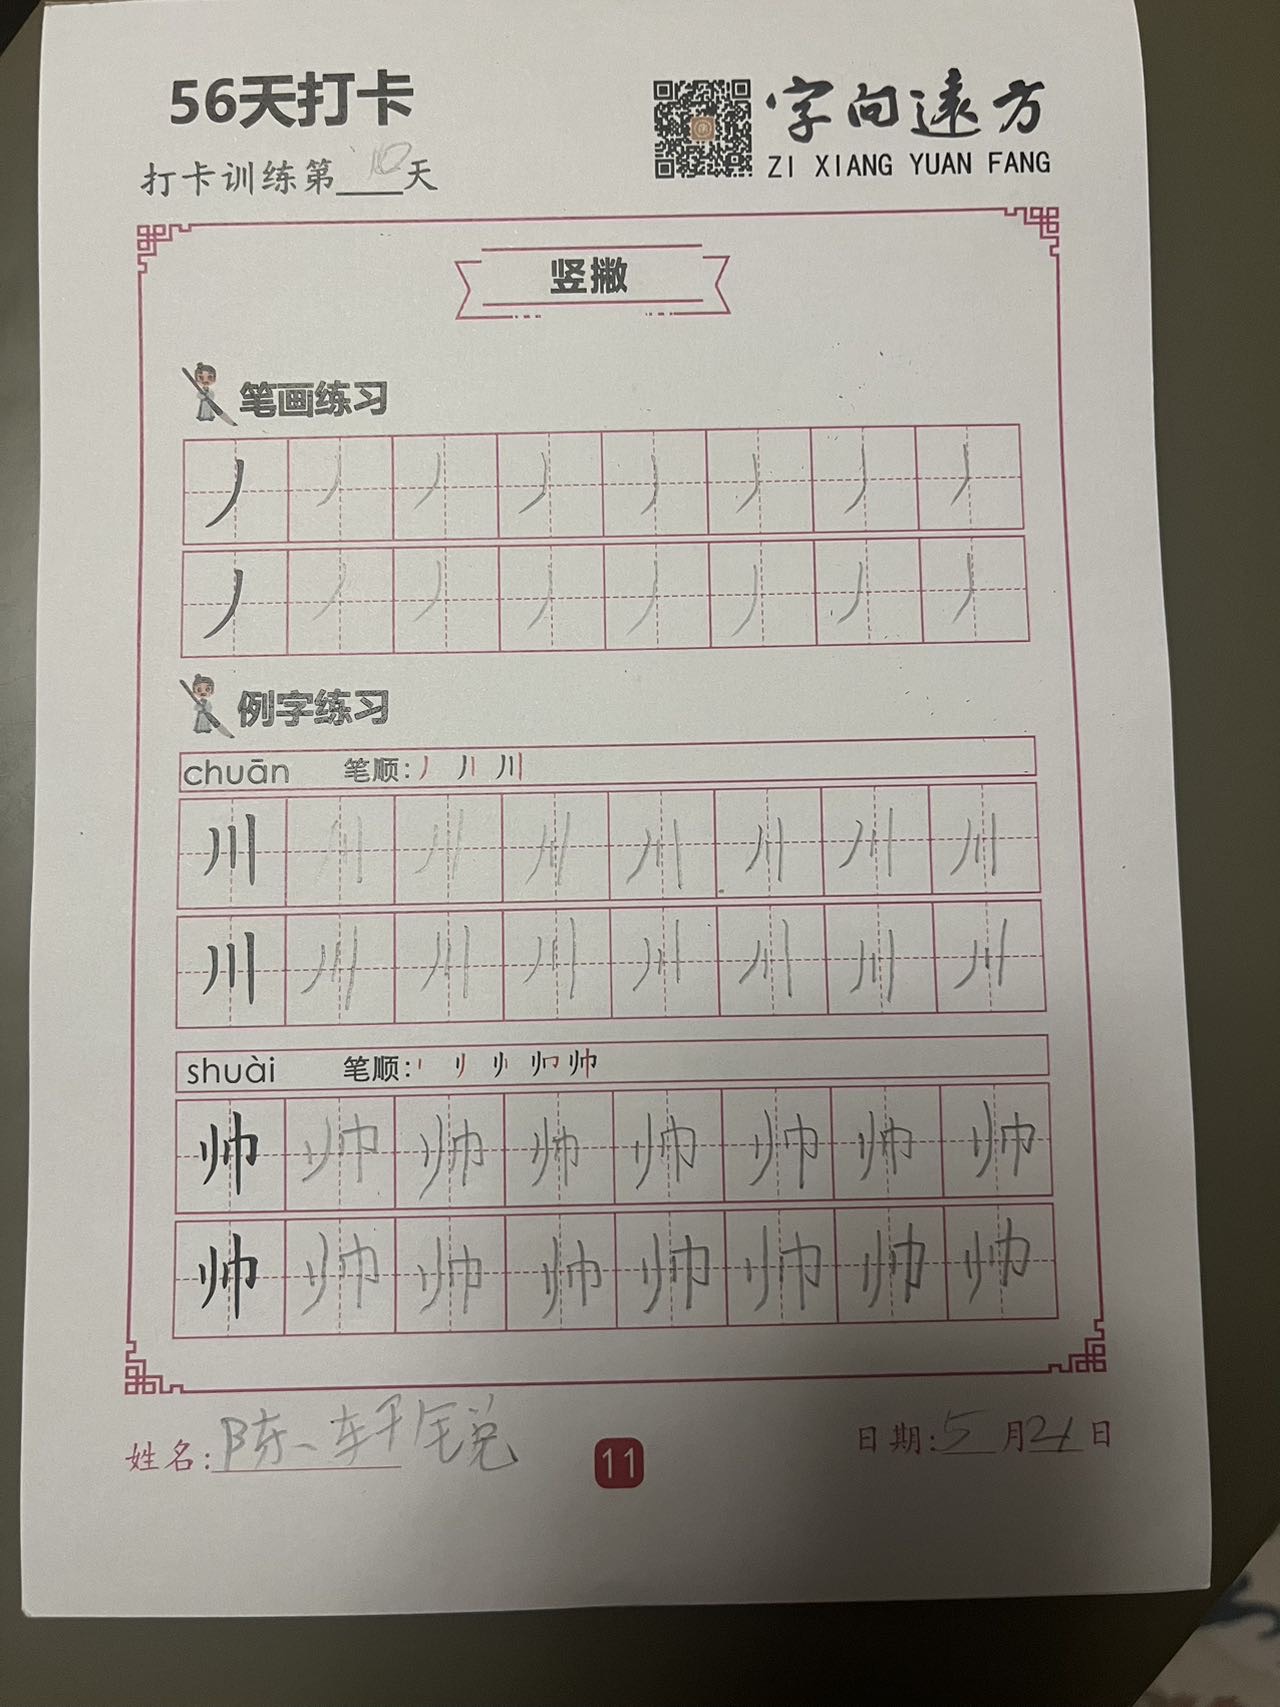 56天打卡
字向遠方
ZI XIANG YUAN FANG
打卡训练第10天
竖撇
笔画练习
丿丿丿丿丿丿丿丿
丿丿丿丿丿丿丿丿
例字练习
chuān 笔顺:
川川川川川川川川
川川川川川川川川
shuài 笔顺:
帅帅帅帅帅帅帅帅
帅帅帅帅帅帅帅帅
姓名:陈一轩
日期:5月21日
11